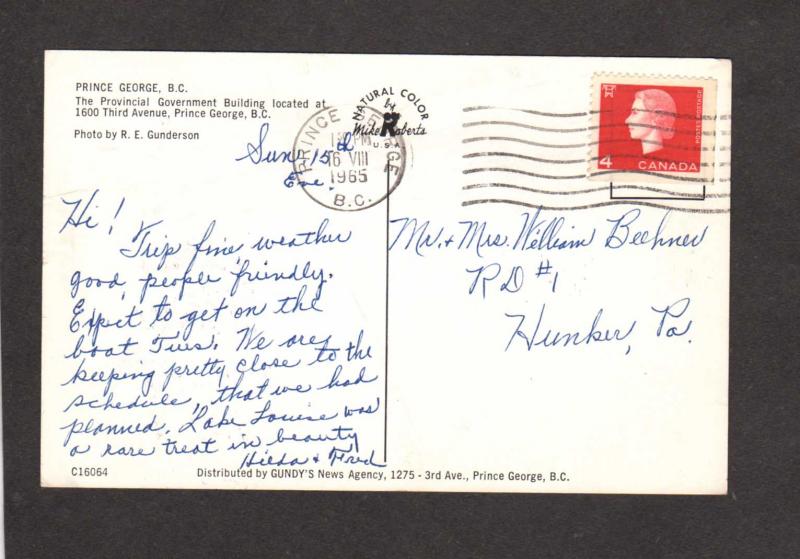 PRINCE GEORGE, B.C.
The Provincial Government Building located at
1600 Third Avenue, Prince George, B.C.
Photo by R. E. Gunderson
NATURAL COLOR
by
Mike Roberts
U.S.A.
PRINCE GEORGE
PM
16 VIII
1965
B.C.
4
CANADA
POSTES POSTAGE
Sun 15th
Eve.
Hi!
Trip fine, weather
good, people friendly.
Expect to get on the
boat Tues. We are
keeping pretty close to the
schedule, that we had
planned. Lake Louise was
a rare treat in beauty
Hilda & Fred
Mr. & Mrs. William Beehner
RD #1
Hunker, Pa.
C16064
Distributed by GUNDY'S News Agency, 1275 - 3rd Ave., Prince George, B.C.